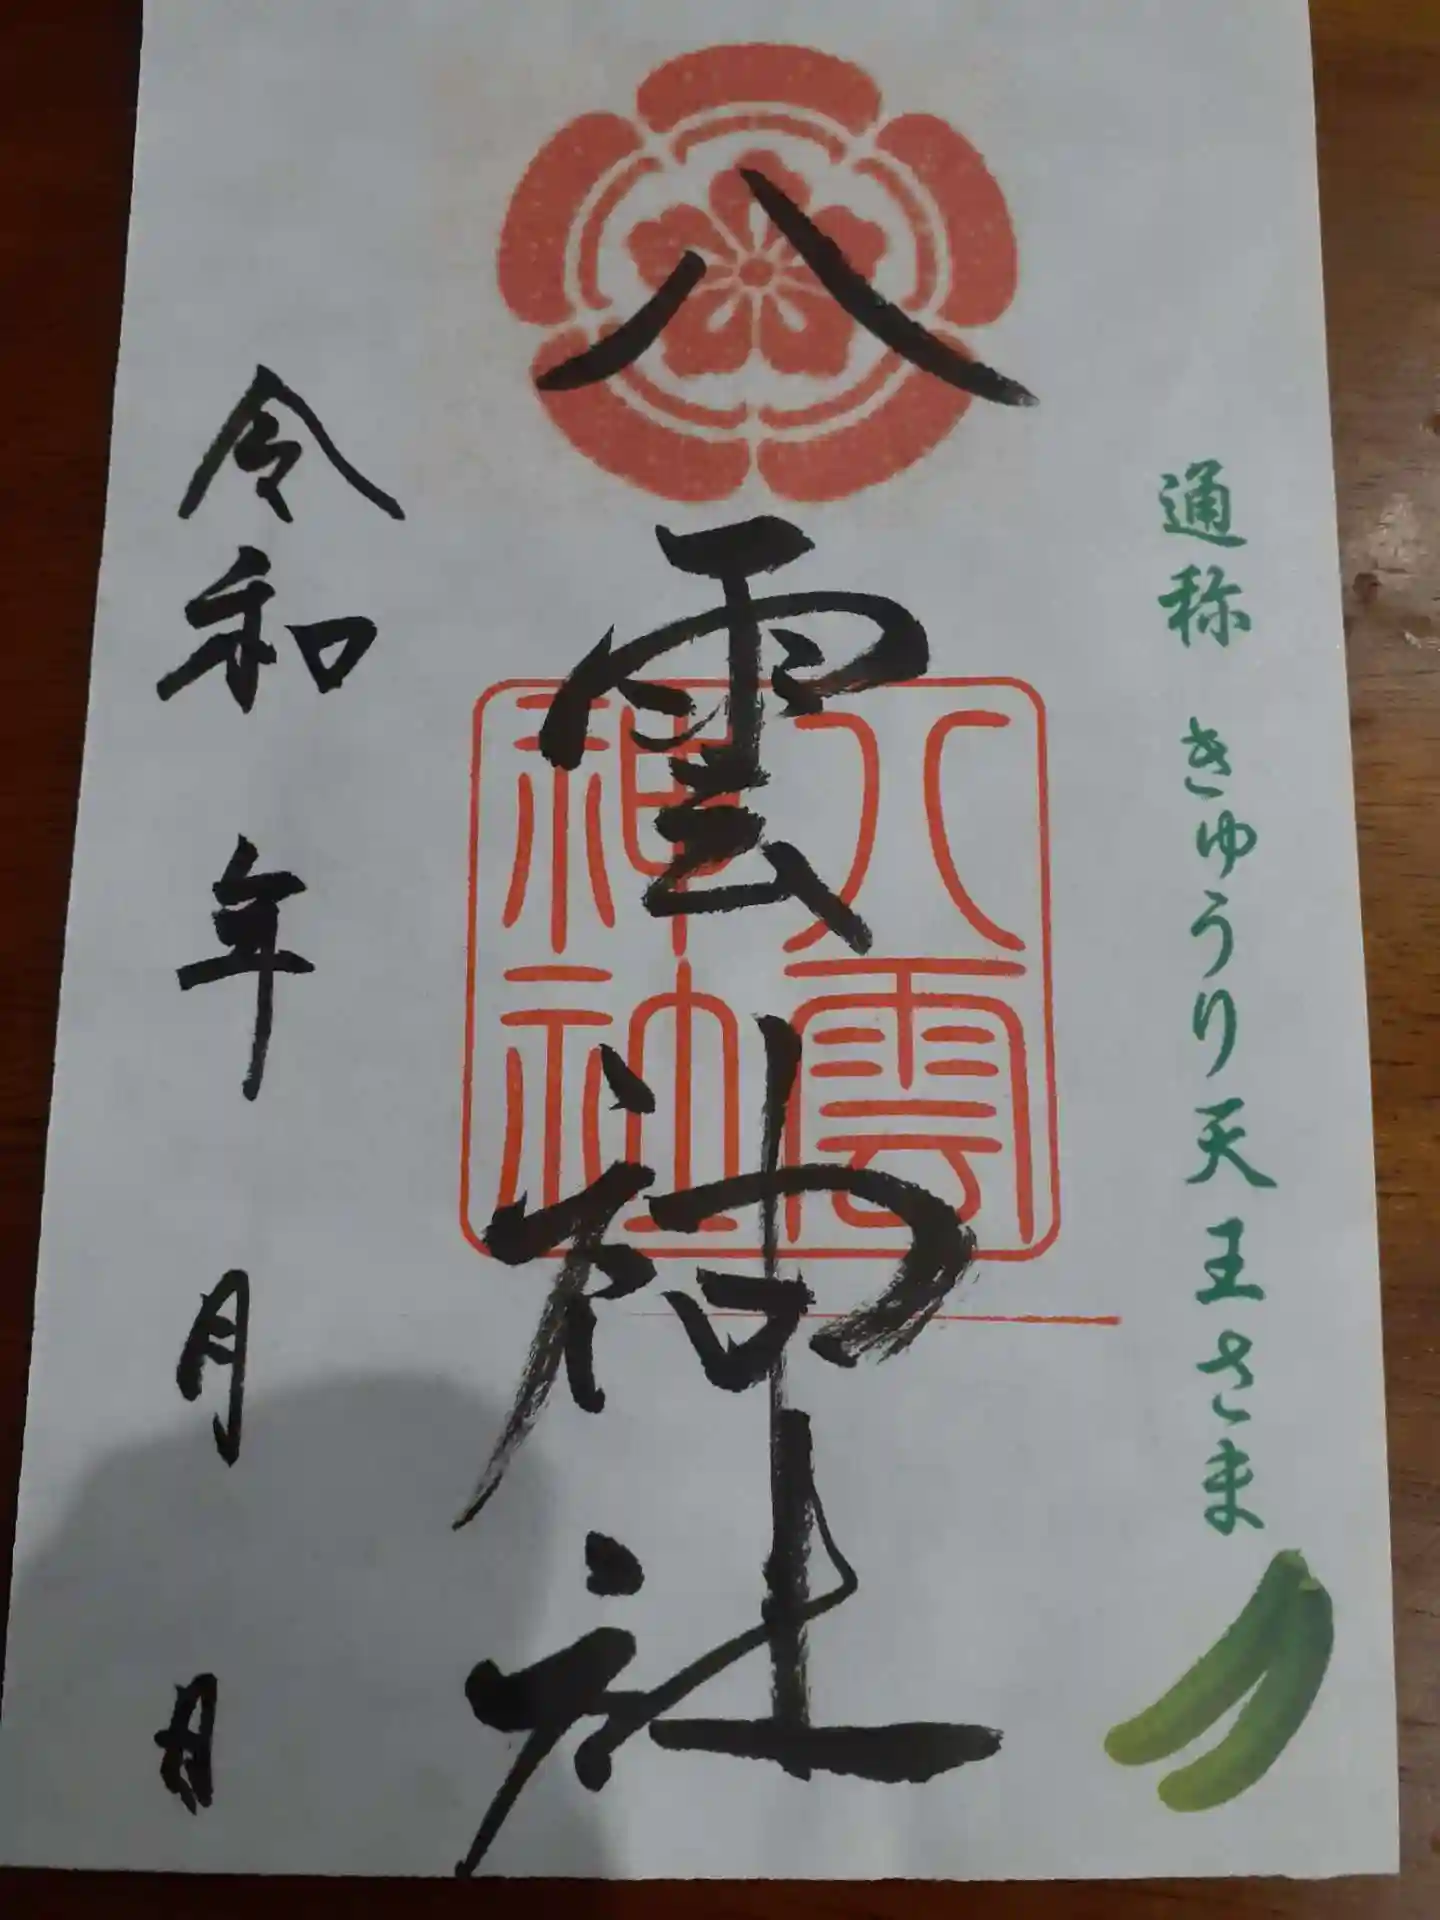 通称 きゅうり天王さま
八雲神社
八雲
神社
令和 年 月 日